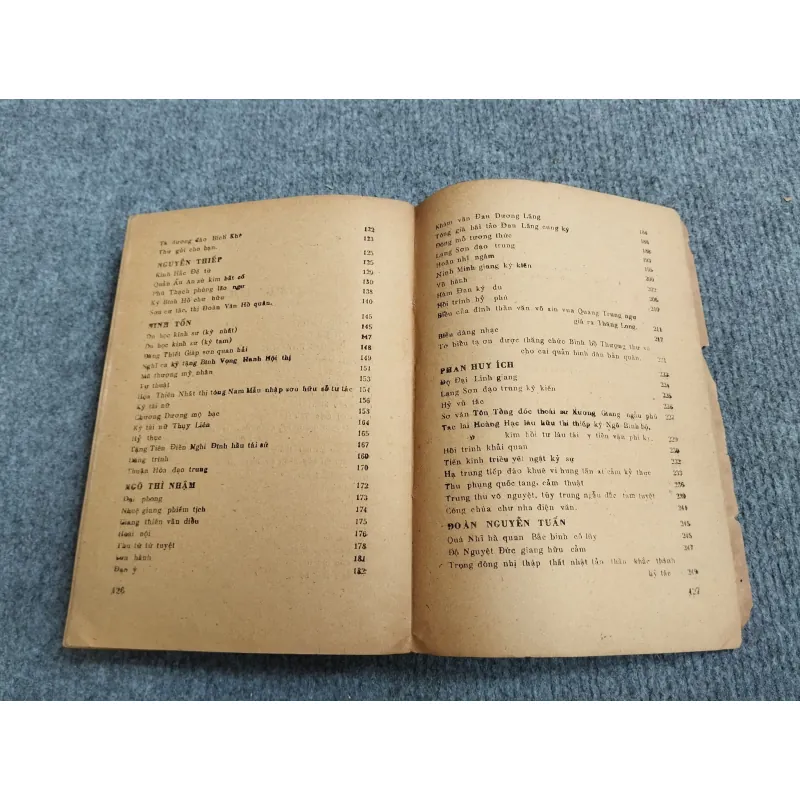 Từ đương đảo Bích Khê 122
Thư gửi cho bạn. 123
NGUYỄN THIẾP 125
Kinh Bắc Đề tử 125
Quân Ấn An sơ kim bất cố 129
Phú Thạch phỏng lão ngư 130
Ký Bình Hồ chư hữu 138
Sơn cư tác, thị Đoàn Văn Hồ quân, 140
NINH TỐN 145
Du học kinh sư (kỳ nhất) 145
Du học kinh sư (kỳ tam) 147
Đăng Thiết Giáp sơn quan hải 148
Nghĩ ra ký tặng Bình Vọng Hanh Hội thị 149
Mã thượng mỹ nhân 151
Tự thuật 153
Họa Thiên Nhất thi tống Nam Mẫn nhập sơn hữu sở tư tác 154
Ký tài nữ 156
Chương Dương mộ bạc 153
Ký tài nữ Thụy Liên 164
Hỷ thực 165
Tặng Tiên Điền Nghi Định hầu tái sứ 167
Đăng trình 169
Thuận Hóa đạo trung 170
NGÔ THÌ NHẬM 172
Đại phong 173
Nhuệ giang phiếm tịch 174
Giang thiên vãn diểu 175
Hoài nội 176
Thu tứ tứ tuyệt 178
Sơn hành 181
Đạn ý 182
426
Khâm vãn Đan Dương Lăng
Tòng giá bái tảo Đan Lăng cung ký 184
Đồng mô tương thức 186
Lạng Sơn đạo trung 188
Hoàn nhĩ ngâm
Ninh Minh giang kỷ kiến 196
Vũ hành
Hàm Đan ký du 207
Hồi trình hỷ phú 209
Biểu của đình thần văn võ xin vua Quang Trung ngự
giá ra Thăng Long. 214
Biểu dâng nhạc 217
Tờ biểu tạ ơn được thăng chức Binh bộ Thượng thư và
cho cai quản hình dân bản quán. 221
PHAN HUY ÍCH
Độ Đại Linh giang 223
Lạng Sơn đạo trung kỷ kiến 224
Hỷ vũ tác 225
Sơ vãn Tôn Tổng đốc thoái sư Xương Giang ngẫu phú 226
Tạc lai Hoàng Hạc lâu hữu thi thiếp ký Ngô Binh bộ,
kim hồi tư lâu tái ý tiền vận phi ký. 229
Hồi trình khải quan 230
Tiến kinh triều yết ngật kỷ sự 232
Hạ trung tiếp đáo khuê vi hung tấn ai cảm kỷ thực 233
Thu phụng quốc tang, cảm thuật 236
Trung thu vô nguyệt, túy trung ngẫu đắc tam tuyệt 239
Công chúa chư nha điện văn. 241
ĐOÀN NGUYỄN TUẤN 245
Quá Nhĩ hà quan Bắc binh cố lũy 245
Độ Nguyệt Đức giang hữu cảm 247
Trọng đông nhị thập thất nhật tấn thần khắc thành
kỷ tác 249
427